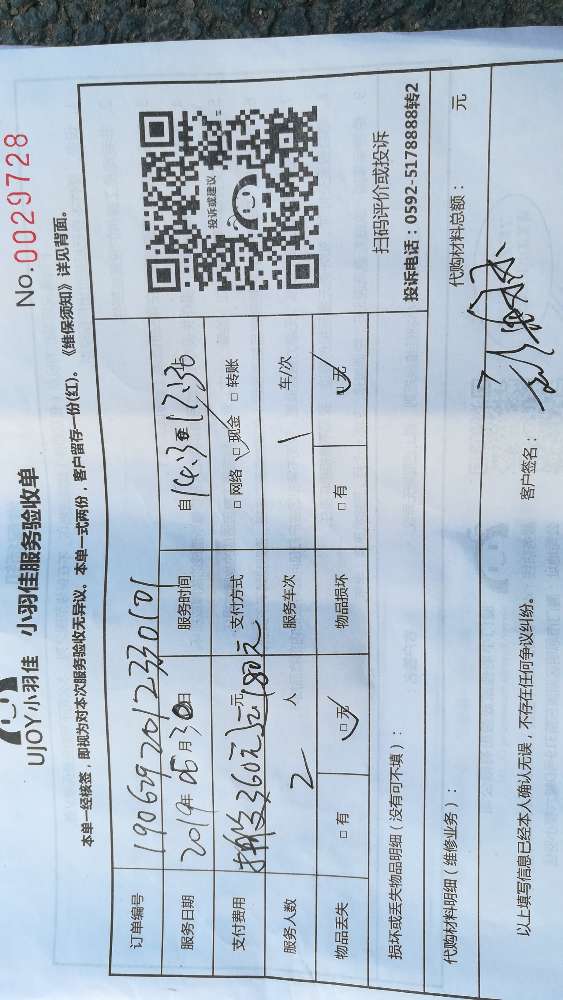 UJOY小羽佳 小羽佳服务验收单
No.0029728
本单一经核签，即视为对本次服务验收无异议。本单一式两份，客户留存一份(红)。《维保须知》详见背面。
订单编号 1906292012330101
服务日期 2019年06月30日 服务时间 自14:30至17:30
支付费用 360元 180元 支付方式 □网络 □现金 □转账
服务人数 2 人 服务车次 1 车/次
物品丢失 □有 □无 物品损坏 □有 □无
投诉或建议
扫码评价或投诉
投诉电话：0592-5178888转2
损坏或丢失物品明细（没有可不填）：
代购材料明细（维修业务）： 代购材料总额： 元
以上填写信息已经本人确认无误，不存在任何争议纠纷。 客户签名：